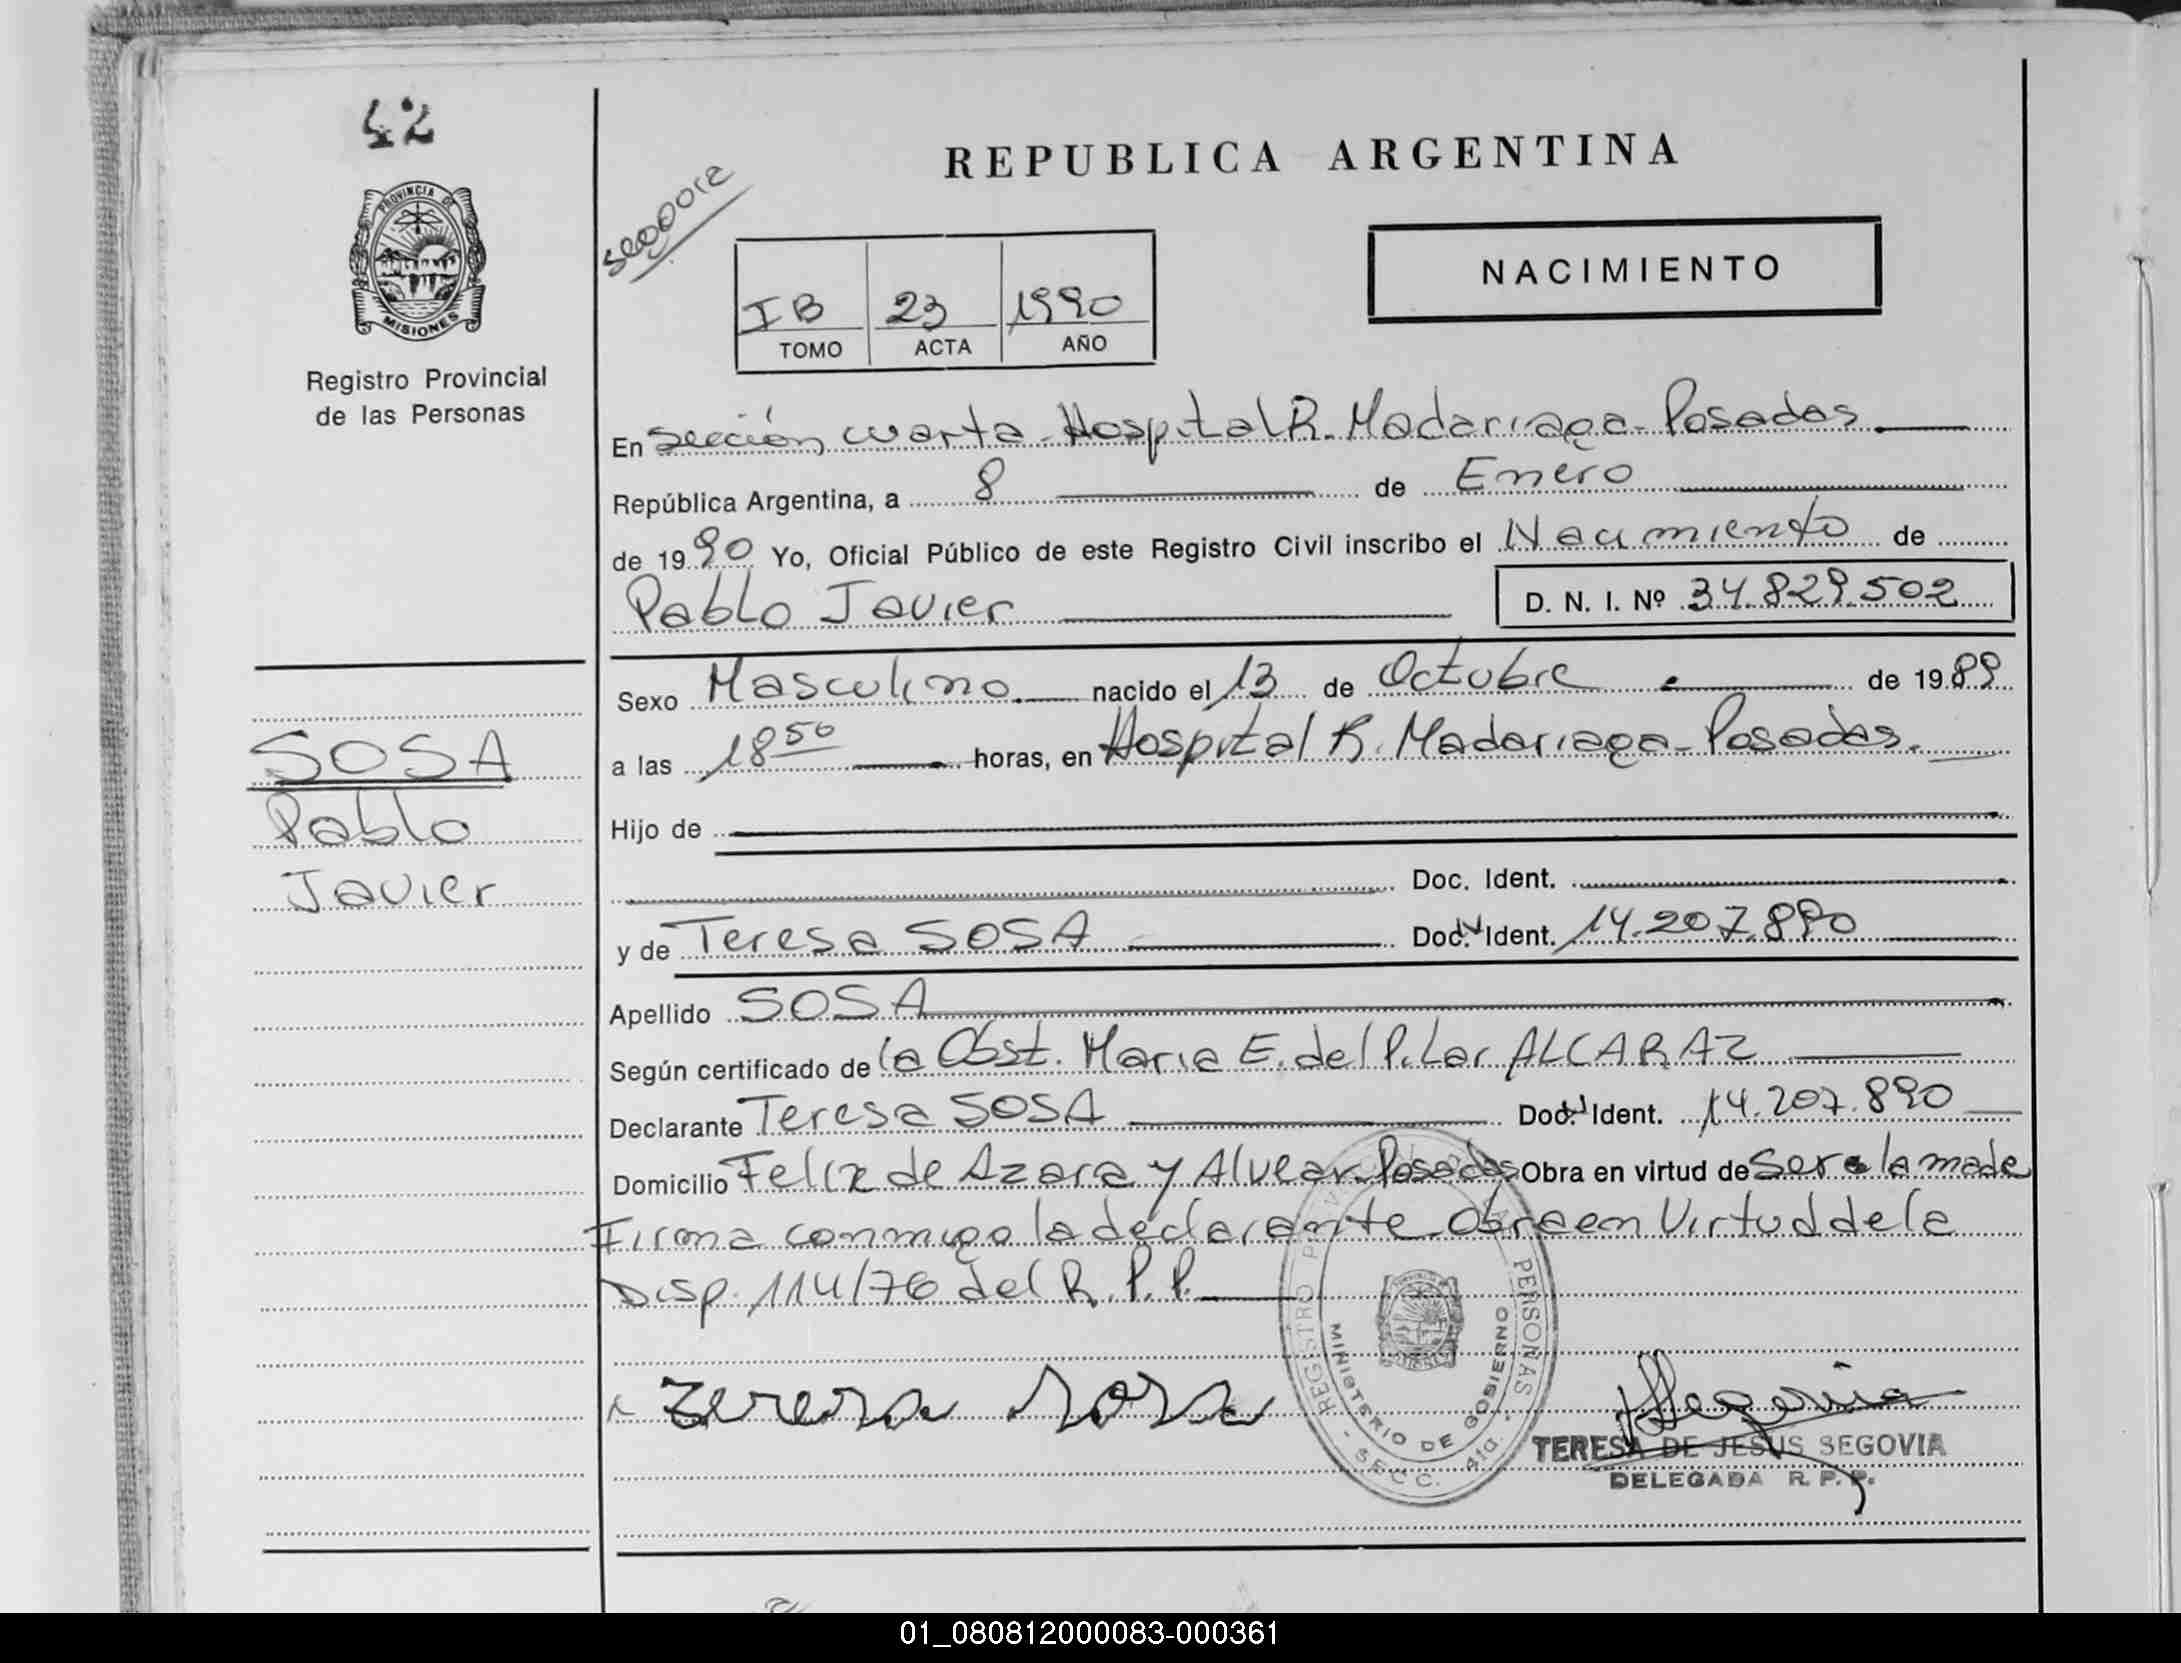 42
PROVINCIA DE
MISIONES
Registro Provincial
de las Personas
REPUBLICA ARGENTINA
IB 23 1990
TOMO ACTA AÑO
NACIMIENTO
En Sección cuarta - Hospital R. Madariaga - Posadas
República Argentina, a 8 de Enero
de 1990 Yo, Oficial Público de este Registro Civil inscribo el Nacimiento de
Pablo Javier D. N. I. Nº 34.829.502
Sexo Masculino nacido el 13 de Octubre de 1989
a las 18 50 horas, en Hospital R. Madariaga - Posadas.
Hijo de
Doc. Ident.
y de Teresa SOSA Doc. Ident. 14.207.890
Apellido SOSA
Según certificado de la Obst. Maria E. del Pilar ALCARAZ
Declarante Teresa SOSA Doc. Ident. 14.207.890
Domicilio Felix de Azara y Alvear - Posadas Obra en virtud de ser la madre
Firma conmigo la declarante - Obra en Virtud de la
Disp. 114/76 del R. P. P.
SOSA
Pablo
Javier
Teresa Sosa
REGISTRO PERSONAS
MINISTERIO DE GOBIERNO
- SECC. 4ta. -
TERESA DE JESUS SEGOVIA
DELEGADA R. P. P.
01_080812000083-000361